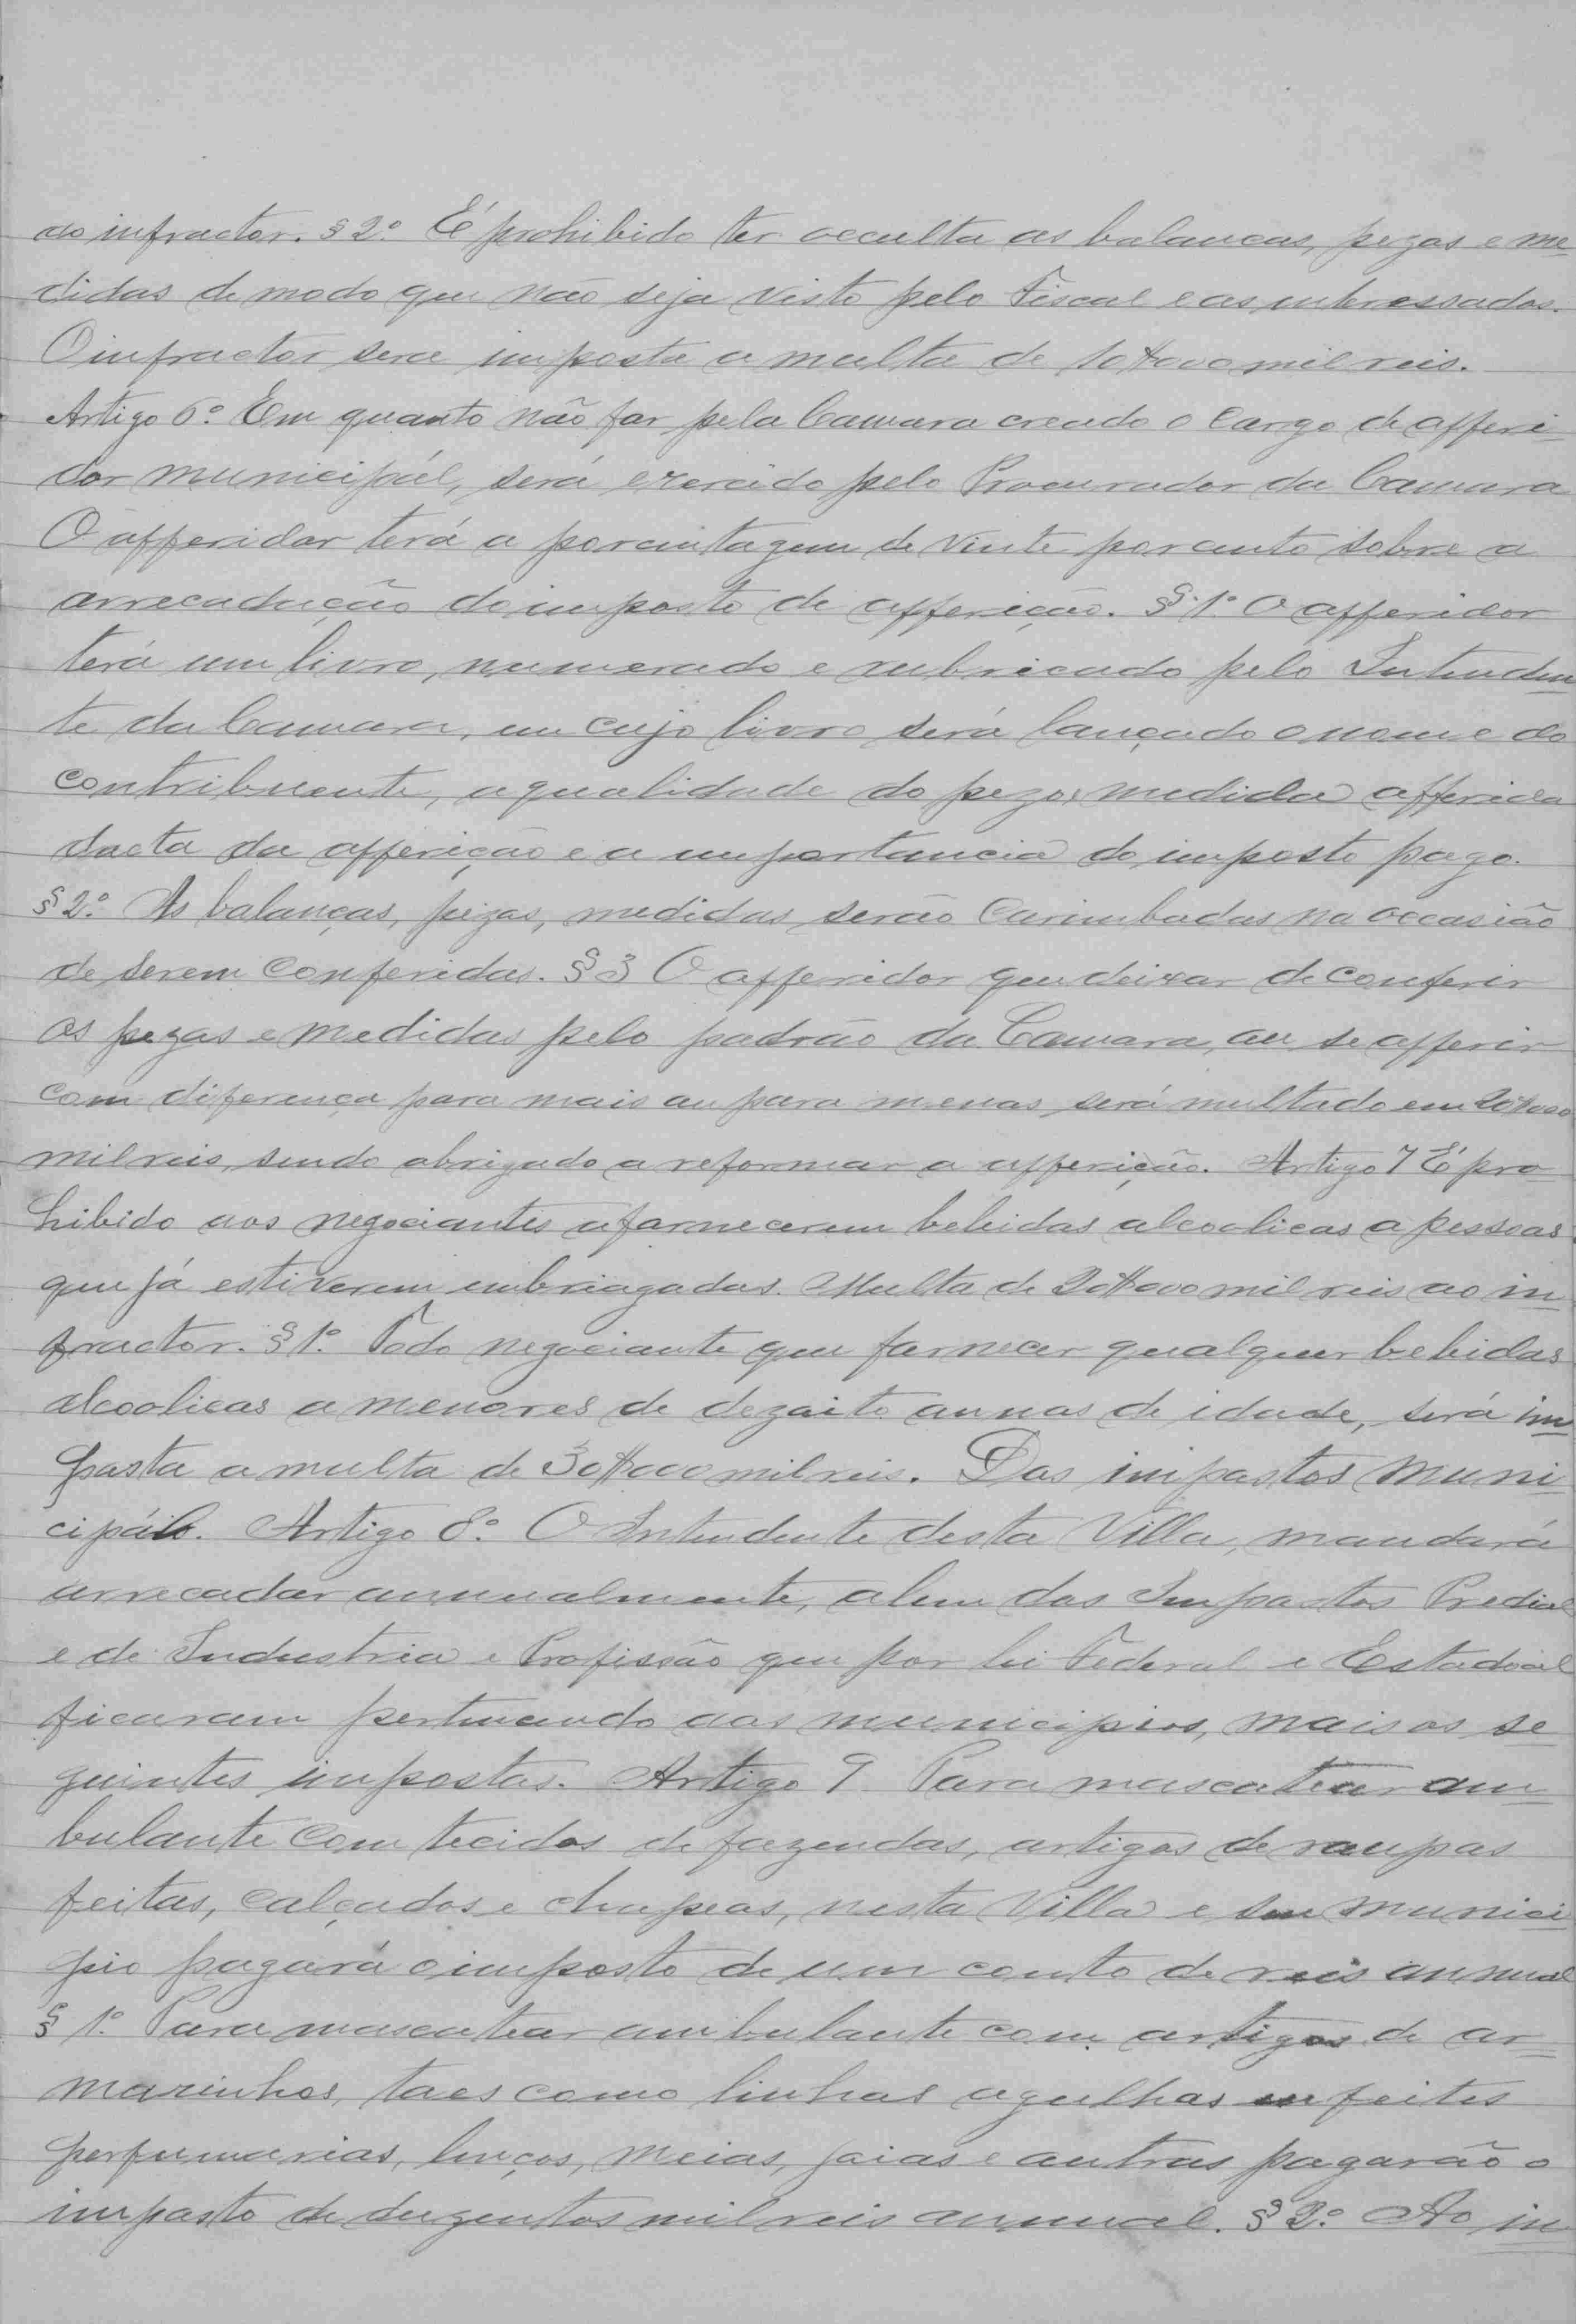 ao infractor. § 2º É prohibido ter occulta as balancas, pezos e me
didas de modo que não seja visto pelo Fiscal e os interessados.
O infractor sera imposta a multa de 10$000 mil reis.
Artigo 6º Em quanto não for pela Camara creado o cargo de afferi
dor municipál, será exercido pelo Procurador da Camara
O afferidor terá a porcintagem de vinte por cento sobre a
arrecadação do imposto de afferição. § 1º O afferidor
terá um livro, numerado e rubricado pelo Intenden
te da Camara, em cujo livro será lançado o nome do
contribuente, a qualidade do pezo, medida afferida
dacta da afferição e a importancia do imposto pago.
§ 2º As balanças, pezos, medidas serão carimbadas na occasião
de serem conferidas. § 3 O afferidor que deixar de conferir
os pezos e medidas pelo padrão da Camara, ou se afferir
com diferença para mais ou para menos será multado em 20$000
mil reis, sendo obrigado a reformar a afferição. Artigo 7 É pro
hibido aos negociantes a fornecerem bebidas alcoolicas a pessoas
que já estiverem embriagadas. Multa de 20$000 mil reis ao in
fractor. § 1º Todo negociante que fornecer qualquer bebidas
alcoolicas a menores de dezoito annos de idade, será im
posta a multa de 30$000 mil reis. Dos impostos muni
cipáis. Artigo 8º O Intendente desta Villa, mandará
arrecadar annualmente, alem dos Impostos Predial
e de Industria e Profissão que por lei Federal e Estadoal
ficaram pertencendo aos municipios, mais os se
guintes impostos. Artigo 9 Para mascatear am
bulante com tecidos de fazendas, artigos de roupas
feitas, calçados e chapeos, nesta Villa e seu munici
pio pagará o imposto de um conto de reis annual
§ 1º Para mascatear ambulante com artigos de ar
marinhos, taes como linhas agulhas enfeites
perfumarias, lenços, meias, joias e outros pagarão o
imposto de duzentos mil reis annual. § 2º Ao in